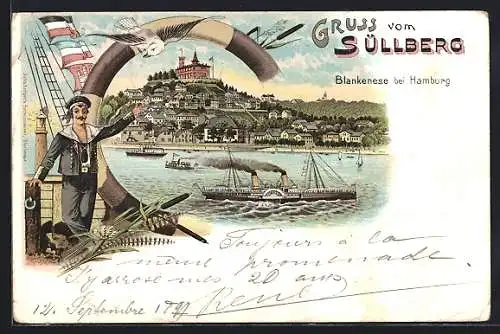 GRUSS vom
SÜLLBERG
Blankenese bei Hamburg
Toujours à la
même promenade
J'arrose mes 20 ans
12. Septembre 189
René